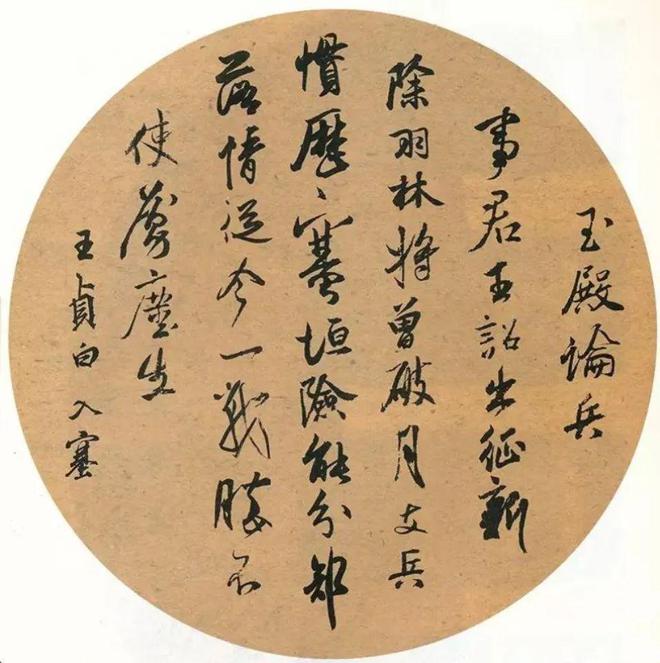 玉殿論兵
事君王詔出征新
除羽林將曾破月支兵
慣歷塞垣險能分部
落情從今一戰勝不
使虜塵生
王貞白入塞